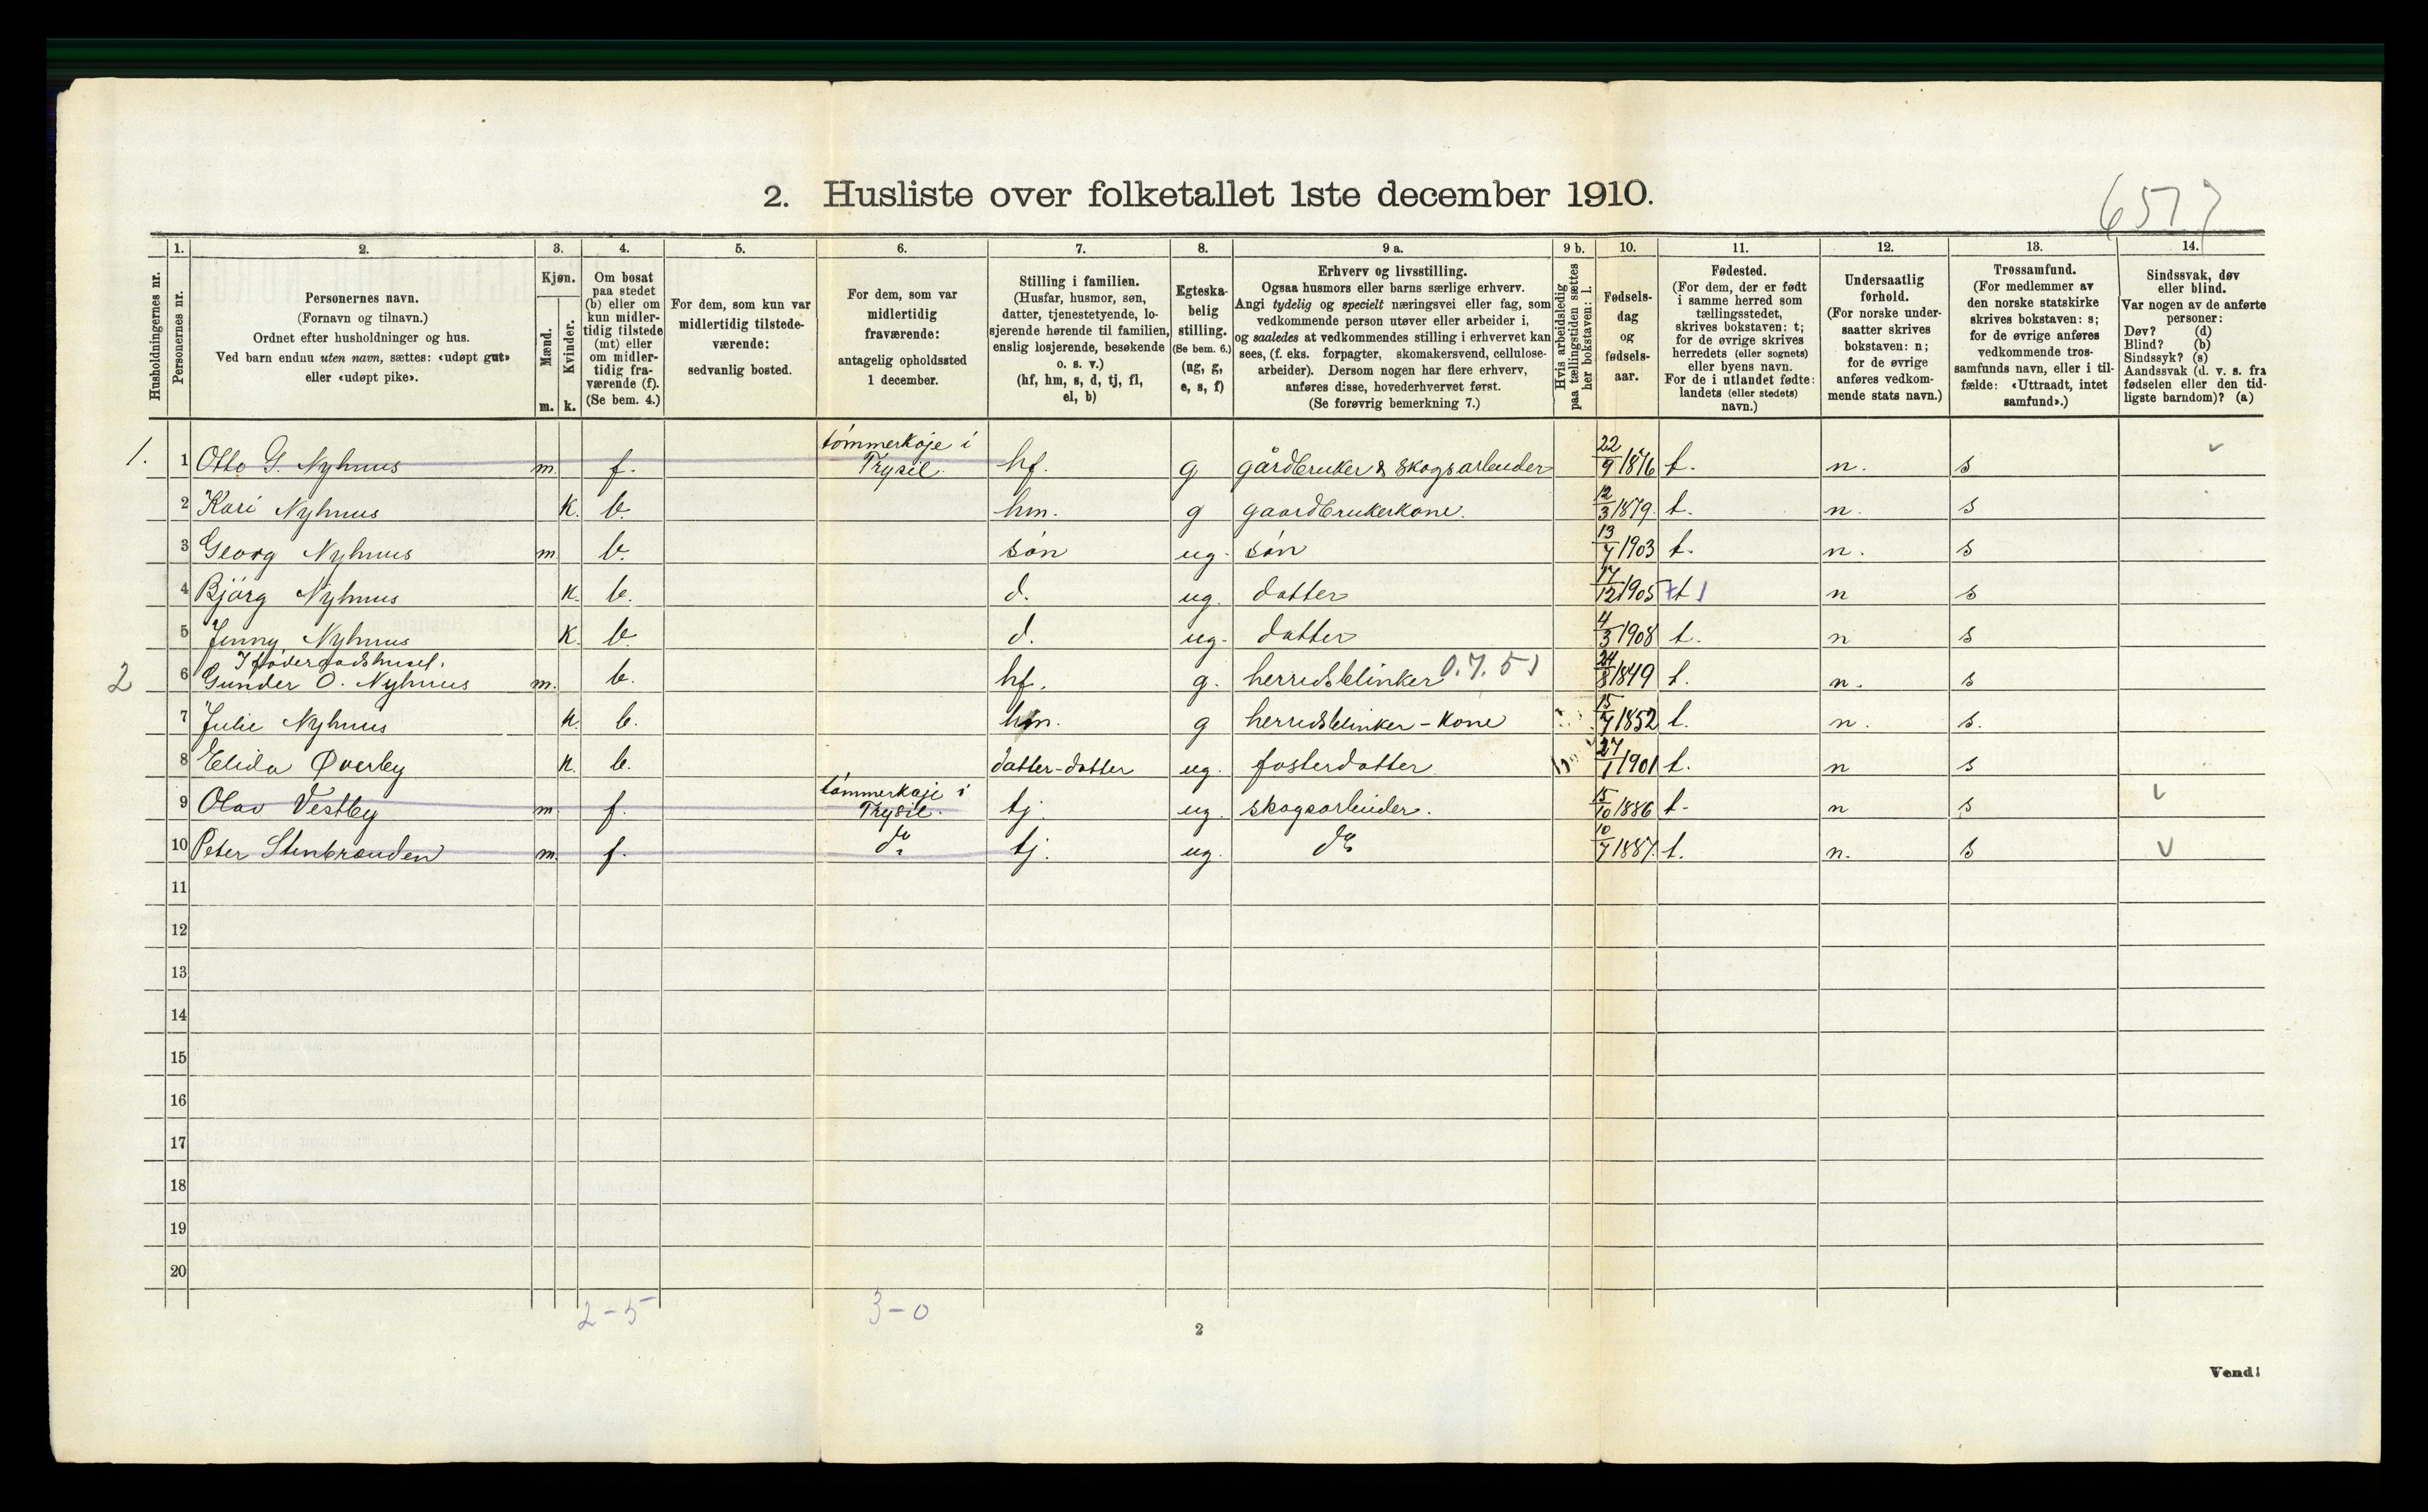 2. Husliste over folketallet 1ste december 1910.
657
Husholdningernes nr.
1.
Personernes nr.
2.
Personernes navn.
(Fornavn og tilnavn.)
Ordnet efter husholdninger og hus.
Ved barn endnu uten navn, sættes: «udøpt gut»
eller «udøpt pike».
3.
Kjøn.
Mænd.
Kvinder.
m. k.
4.
Om bosat
paa stedet
(b) eller om
kun midler-
tidig tilstede
(mt) eller
om midler-
tidig fra-
værende (f).
(Se bem. 4.)
5.
For dem, som kun var
midlertidig tilstede-
værende:
sedvanlig bosted.
6.
For dem, som var
midlertidig
fraværende:
antagelig opholdssted
1 december.
7.
Stilling i familien.
(Husfar, husmor, søn,
datter, tjenestetyende, lo-
sjerende hørende til familien,
enslig losjerende, besøkende
o. s. v.)
(hf, hm, s, d, tj, fl,
el, b)
8.
Egteska-
belig
stilling.
(Se bem. 6.)
(ug, g,
e, s, f)
9 a.
Erhverv og livsstilling.
Ogsaa husmors eller barns særlige erhverv.
Angi tydelig og specielt næringsvei eller fag, som
vedkommende person utøver eller arbeider i,
og saaledes at vedkommendes stilling i erhvervet kan
sees, (f. eks. forpagter, skomakersvend, cellulose-
arbeider). Dersom nogen har flere erhverv,
anføres disse, hovederhvervet først.
(Se forøvrig bemerkning 7.)
9 b.
Hvis arbeidsledig
paa tællingstiden sættes
her bokstaven: l.
10.
Fødsels-
dag
og
fødsels-
aar.
11.
Fødested.
(For dem, der er født
i samme herred som
tællingsstedet,
skrives bokstaven: t;
for de øvrige skrives
herredets (eller sognets)
eller byens navn.
For de i utlandet fødte:
landets (eller stedets)
navn.)
12.
Undersaatlig
forhold.
(For norske under-
saatter skrives
bokstaven: n;
for de øvrige
anføres vedkom-
mende stats navn.)
13.
Trossamfund.
(For medlemmer av
den norske statskirke
skrives bokstaven: s;
for de øvrige anføres
vedkommende tros-
samfunds navn, eller i til-
fælde: «Uttraadt, intet
samfund».)
14.
Sindssvak, døv
eller blind.
Var nogen av de anførte
personer:
Døv? (d)
Blind? (b)
Sindssyk? (s)
Aandssvak (d. v. s. fra
fødselen eller den tid-
ligste barndom)? (a)
1. 1 Otto G. Nyhuus m. f. tömmerkoje i Trysil. hf. g gårdbruker & skogsarbeider 22/9 1876 t. n. s
2 Kari Nyhuus k. b. hm. g gaardbrukerkone. 12/3 1879. t. n. s
3 Georg Nyhuus m b. sön ug. sön 13/7 1903 t. n. s
4 Bjørg Nyhuus k. b. d. ug. datter 17/12 1905 t n s
5 Jenny Nyhuus k. b. d. ug. datter 4/3 1908 t. n s
I föderaadshuset.
2 6 Gunder O. Nyhuus m. b. hf. g. herredsblinker 0.7.51 24/8 1849 t. n. s
7 Julie Nyhuus k. b. hm. g herredsblinker-kone 15/7 1852 t. n. s.
8 Elida Øverby k. b. datter-datter ug. fosterdatter 27/1 1901 t. n s
9 Olav Vestby m f. tömmerkoje i Trysil. tj. ug. skogsarbeider. 15/10 1886 t. n s
10 Peter Stenbraaden m. f. do tj. ug. do 10/7 1887. t. n. s
11
12
13
14
15
16
17
18
19
20
2-5 3-0
2
Vend!